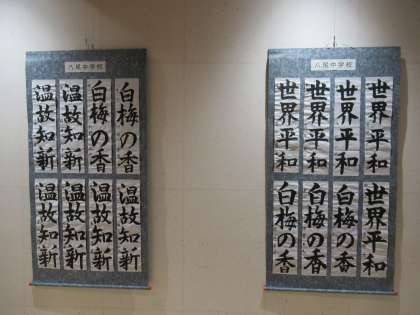 八尾中学校
白梅の香
白梅の香
温故知新
温故知新
温故知新
温故知新
温故知新
温故知新
八尾中学校
世界平和
世界平和
世界平和
世界平和
世界平和
白梅の香
白梅の香
白梅の香